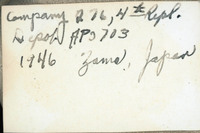 Company 276, 4th Repl.
Depot APO 703
1946 Zama, Japan